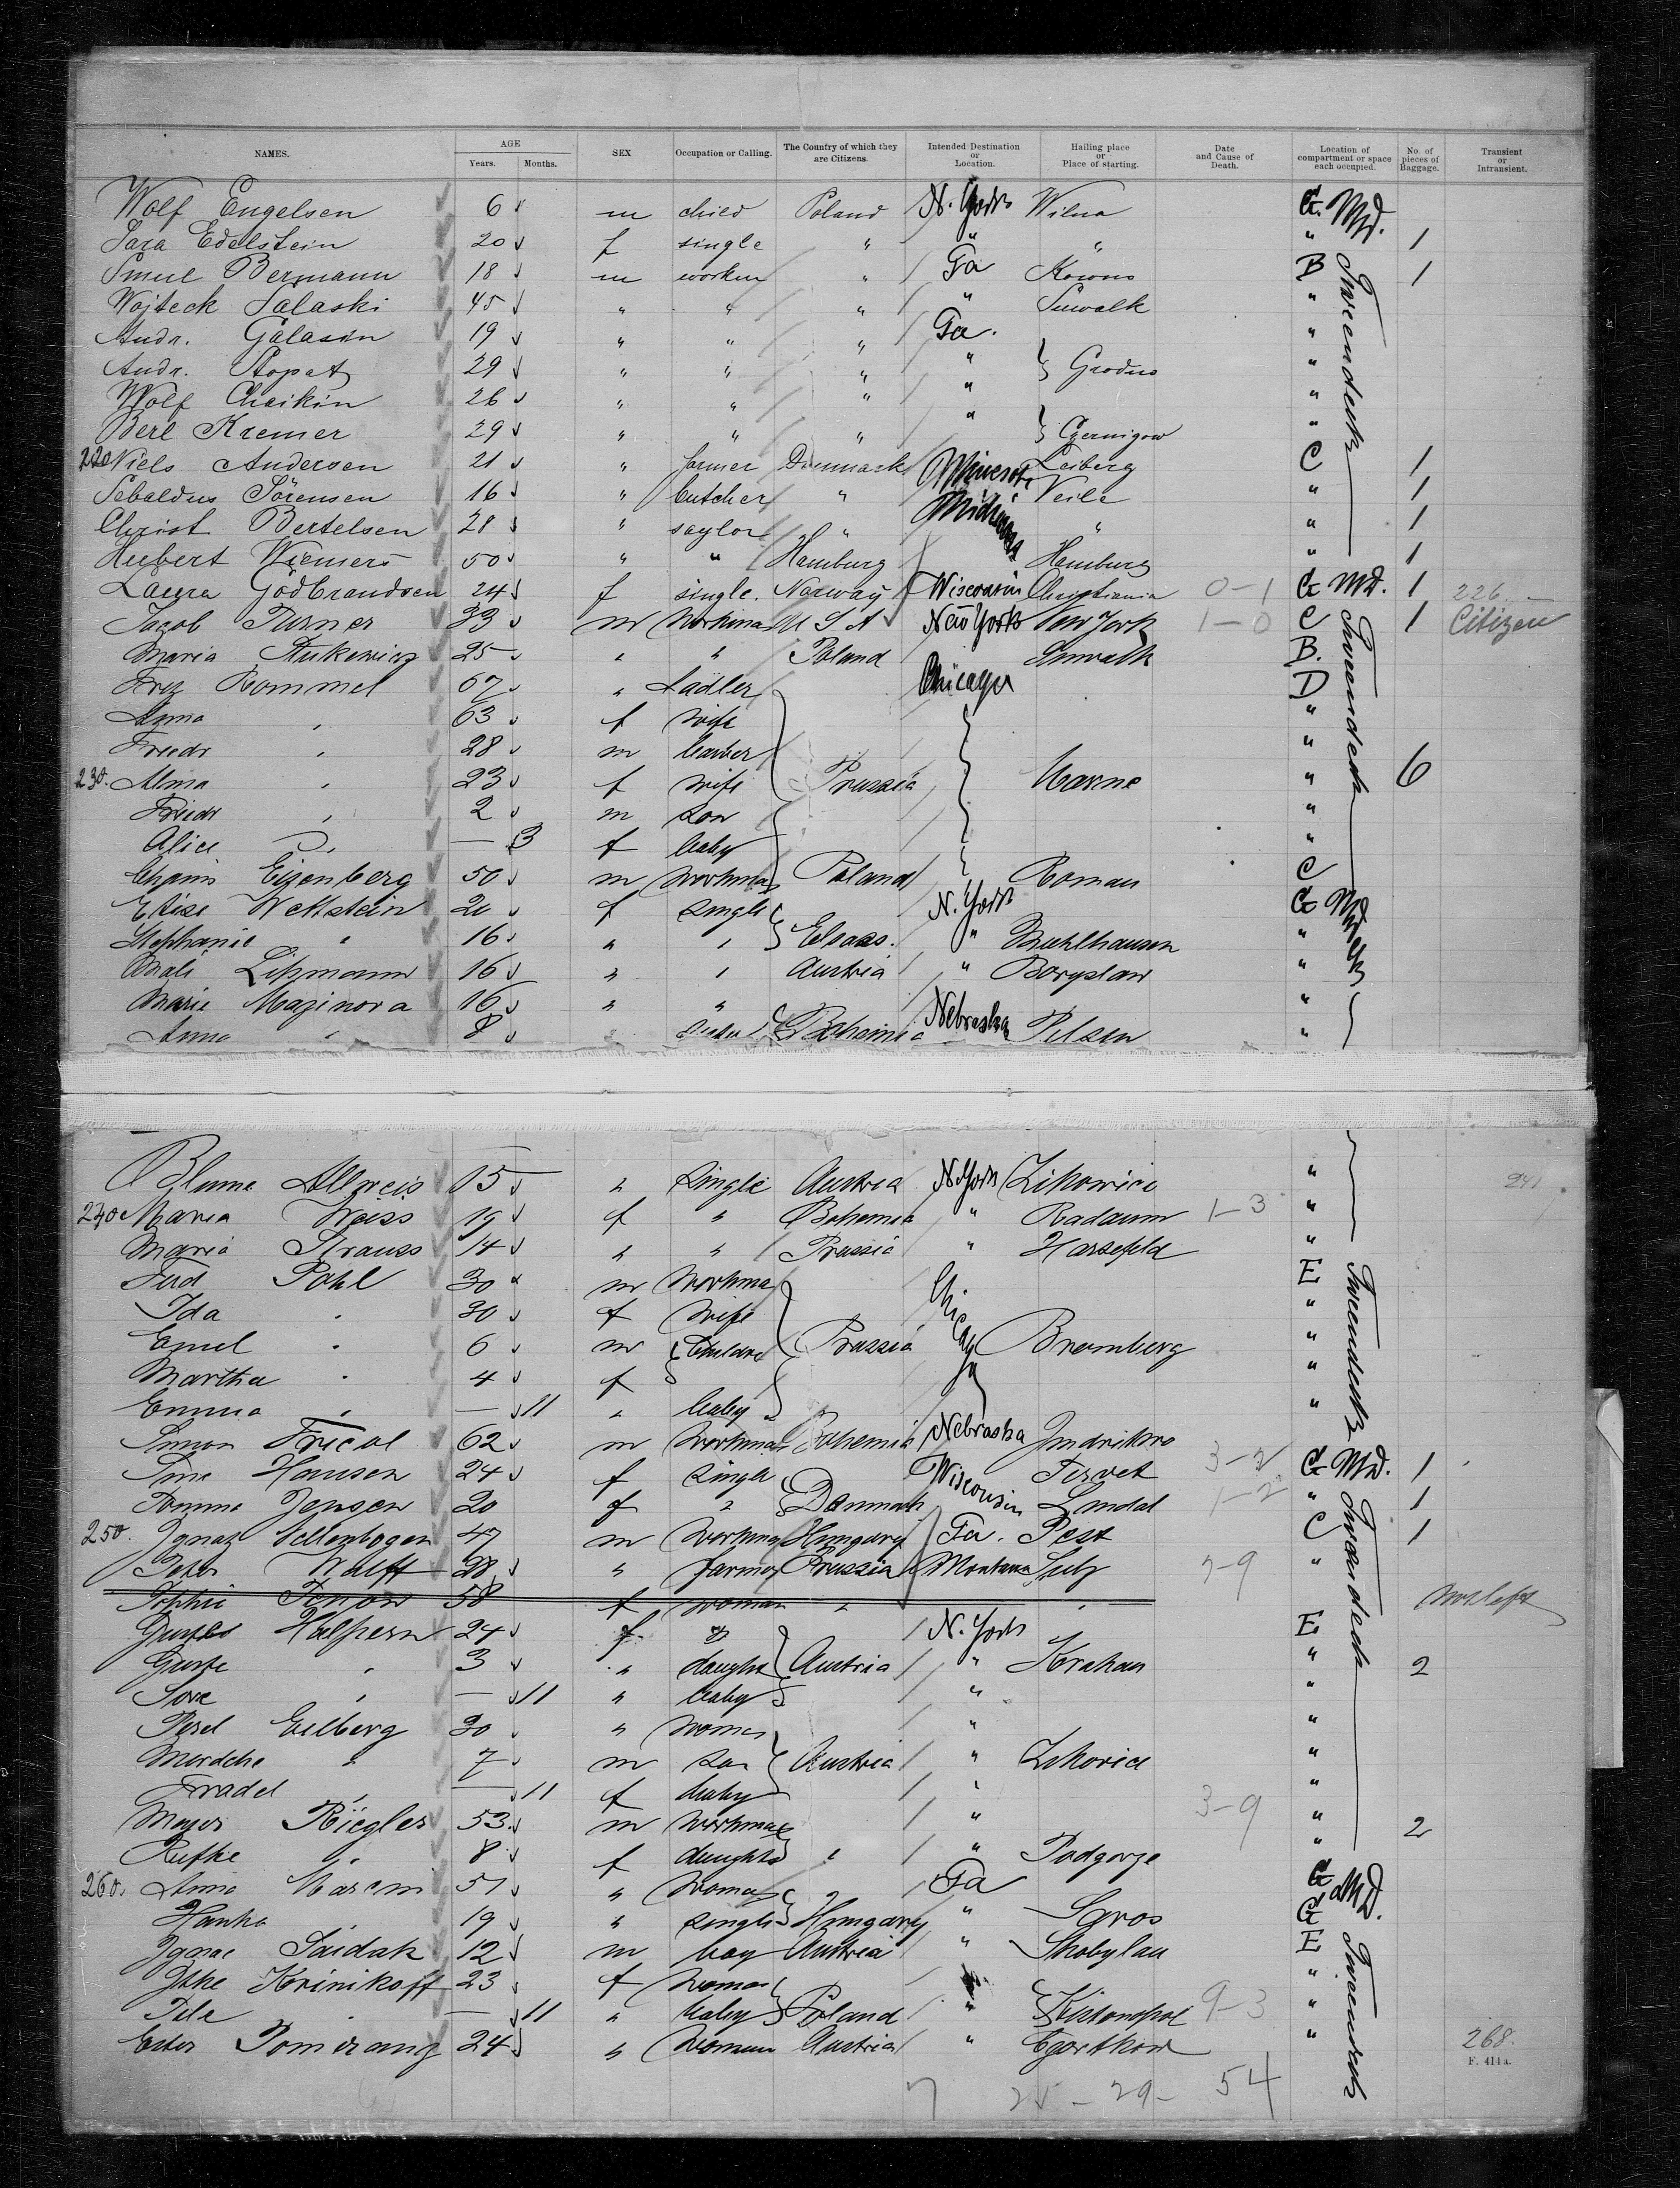 NAMES. AGE Years. Months. SEX Occupation or Calling. The Country of which they are Citizens. Intended Destination or Location. Hailing place or Place of starting. Date and Cause of Death. Location of compartment or space each occupied. No. of pieces of Baggage. Transient or Intransient.
Wolf Engelsen 6 m child Poland N. York Wilna G. Md.
Sara Edelstein 20 f single " " " " 1
Smul Bermann 18 m worker " Pa Kowno B 1
Wojteck Salaski 45 " " " " Suwalk "
Andr. 19 " " " Pa. "
Andr. Stopat 29 " " " " } Grodno "
Wolf Chaikin 26 " " " " "
Berl Kremer 29 " " " " } Czernigow "
220 Niels Andersen 21 " farmer Dänmark Leiberg C 1
Sebaldus Sörensen 16 " butcher " Veile " 1
Christ Bertelsen 28 " saylor " " " 1
Hubert Wiemers 50 " " Hamburg Hamburg " 1
Laura Gödbrandsen 24 f single. Norway Wisconsin Christiania 0-1 G Md. 1 226
Jacob Turner 33 m workman U S A New York New York 1-0 C 1 Citizen
Maria 25 " " Poland Suwalk B.
Frz Rommel 67 " Sadler Chicago D
Anna " 63 f wife "
Friedr " 28 m barber "
230. Alma " 23 f wife Prussia Marne " 6
Friedr " 2 m son "
Alice " — 3 f baby "
Chaim Eizenberg 50 m workman Poland Roman C
Elise Wettstein 20 f single N. York G Md
Stephanie " 16 " " } Elsass. " Muhlhausen "
Mali Lipmann 16 " " Austria " Boryslaw "
Marie Mazinova 16 " " "
Anna " 8 " Bohemia Nebraska Pilsen "
Blume Allweis 15 " single Austria N. York Zikowice "
240 Maria Weiss 19 f " Bohemia " Radaum 1-3 "
Maria Strauss 14 " " Prussia " Harsefeld "
Ferd Pohl 30 m workma E
Ida " 30 f wife "
Emil " 6 m Prussia Chicago Bromberg "
Martha " 4 f "
Emma " — 11 " baby "
Simon Fricol 62 m workman Bohemia Nebraska
Sine Hansen 24 f single Wisconsin 3-2 G Md. 1
Jensen 20 f " Danmark Lindal 1-2 " 1
250. Ignaz Sellenbogen 47 m workman Hungary Pa. Pest C 1
Peter Wulff 28 " farmer Prussia Montana Sulz 7-9 "
Sophie 58 f woman " " not left
Halpern 24 f " N. York E
Guste " 3 " daught Austria " Krakau " 2
Sore " — 11 " baby " "
Pesel Eilberg 30 " woman " "
Mordche " 7 m son Austria " Zikovice "
Fradel " — 11 f baby " "
Meyer Riegler 53 m workman " 3-9 " 2
Rifke " 8 f daught " " Podgorze "
260. Anna 51 " woman Pa G Md.
Hanka " 19 " single Hungary " Saros G
Ignac Saidak 12 m boy Austria " Skobylau E
Itke Krinikoff 23 f woman "
Pele " — 11 " baby Poland " 9-3 "
Ester Pomeranz 24 " woman Austria " Czortkow "
268.
F. 411a.
7 25 - 29 - 54